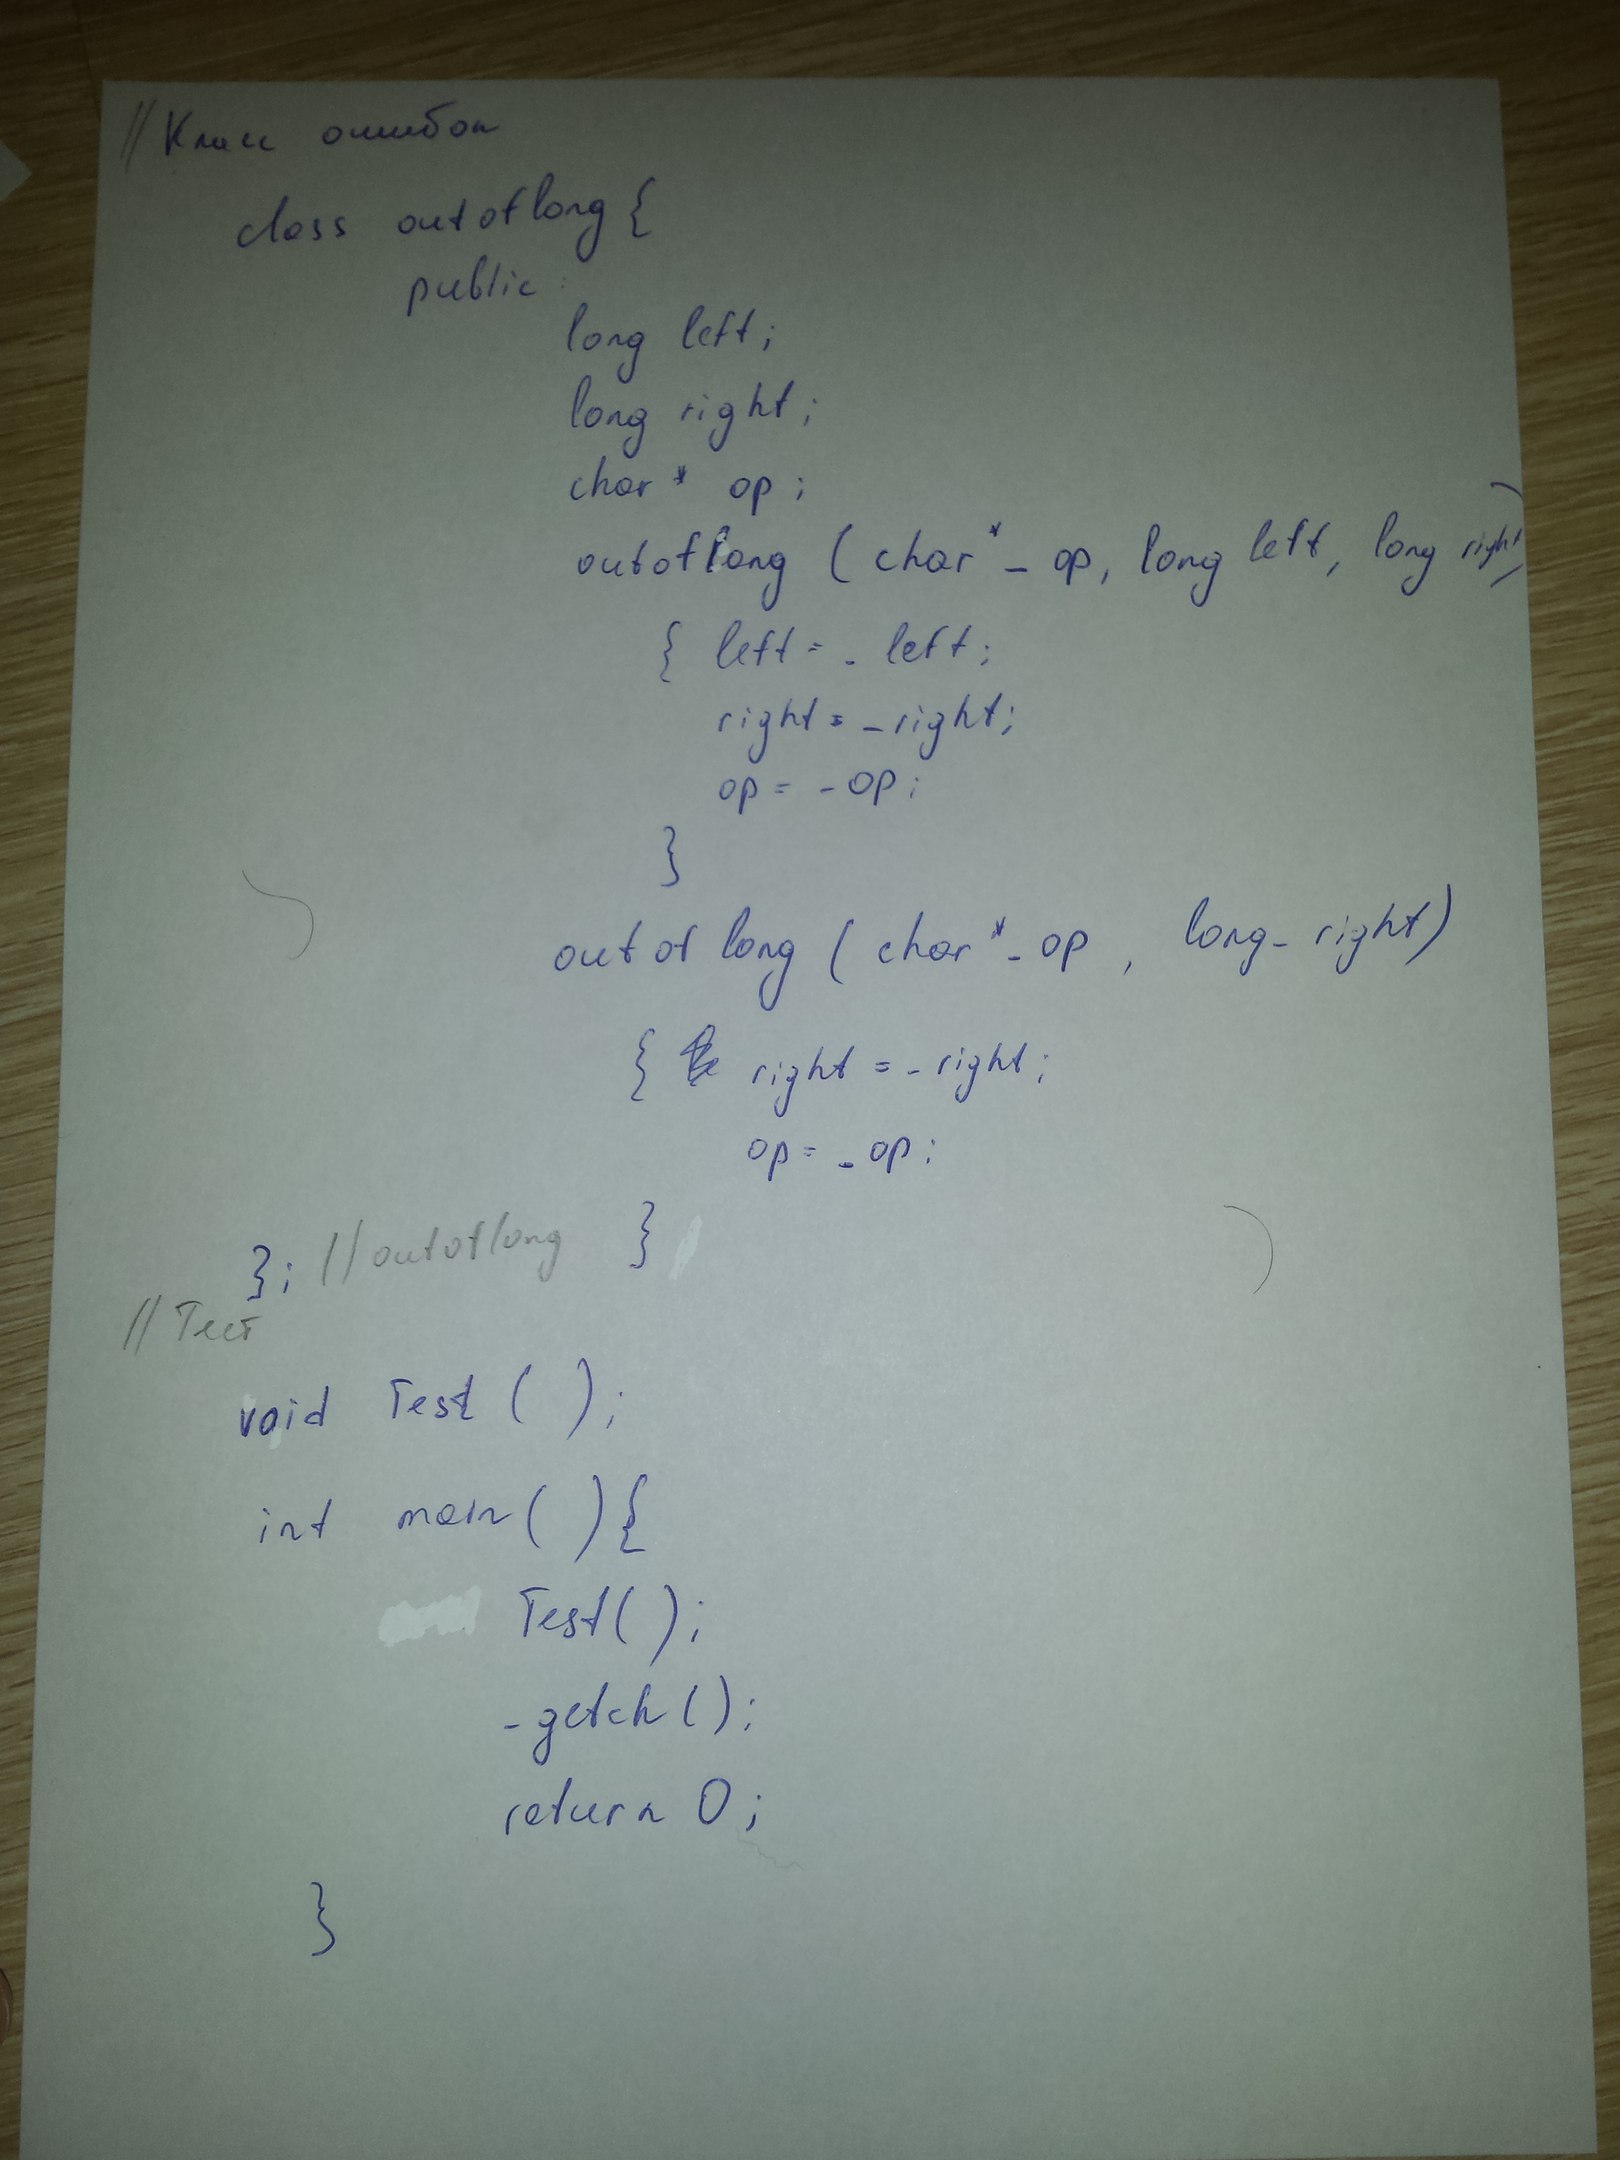 // Класс ошибок
class outoflong {
public:
long left;
long right;
char* op;
outoflong (char* _op, long left, long right)
{ left = _left;
right = _right;
op = _op;
}
outoflong (char* _op, long _right)
{ right = _right;
op = _op;
}
}; // outoflong
// Тест
void Test ( );
int main ( ) {
Test( );
_getch ( );
return 0;
}